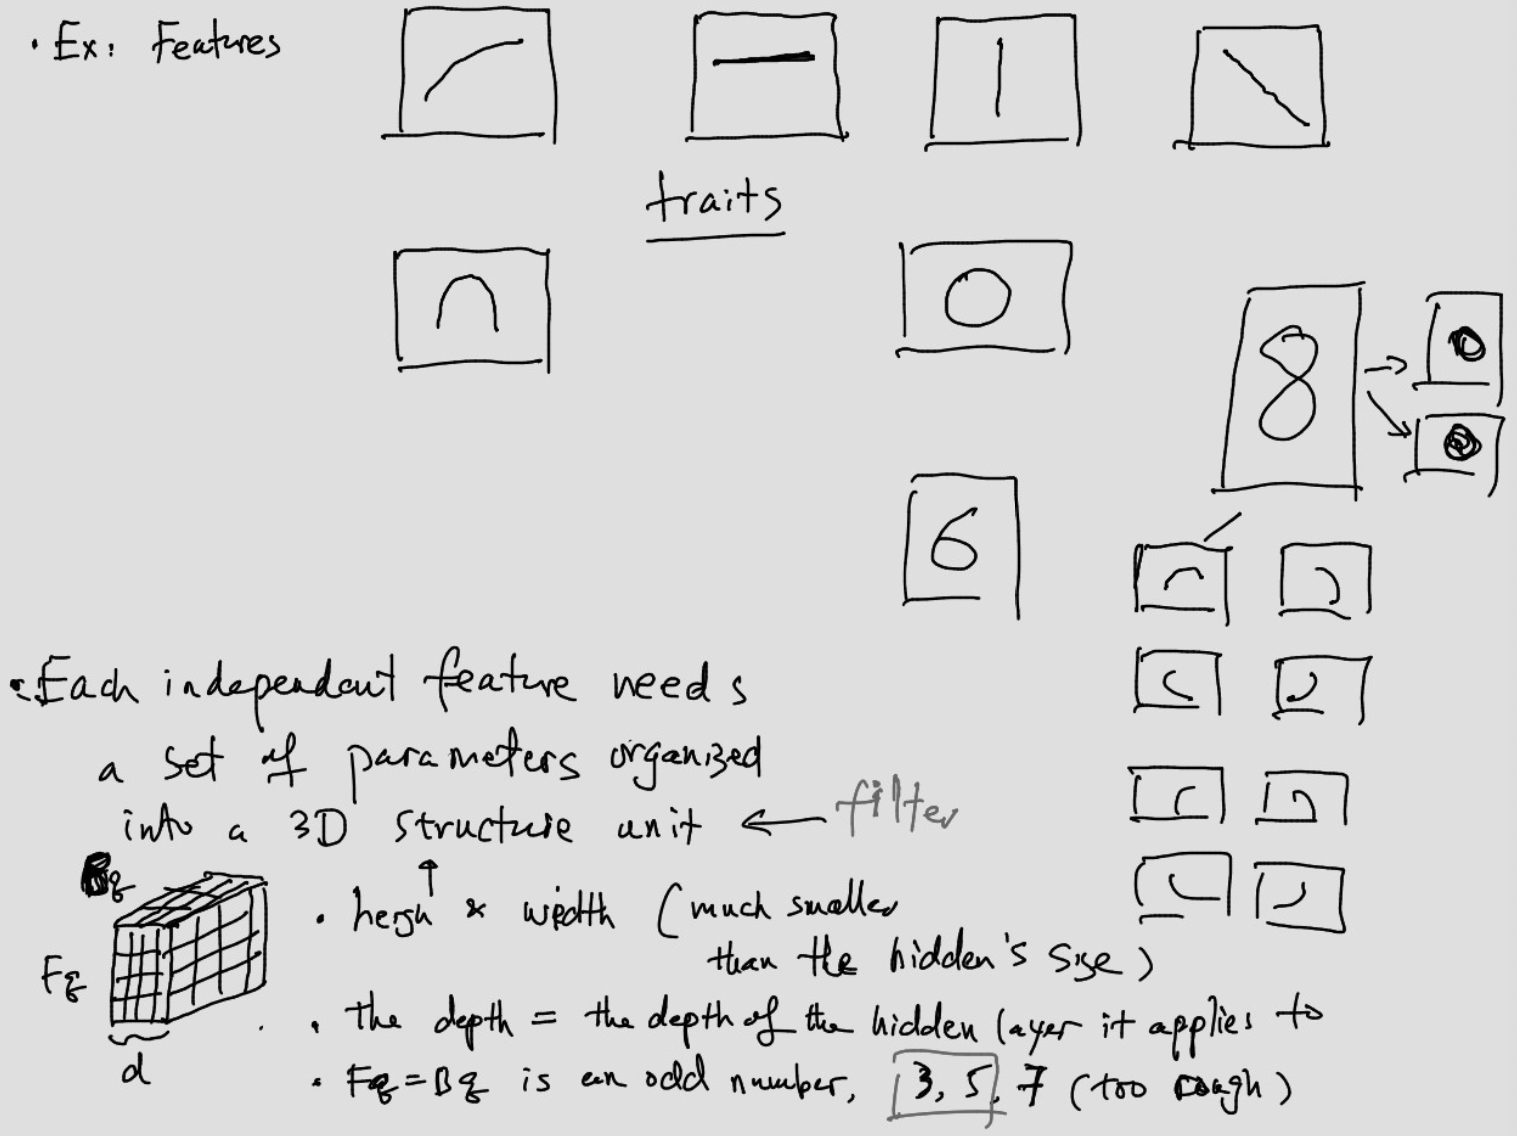 · Ex: Features
traits
8
6
· Each independent feature needs
a set of parameters organized
into a 3D structure unit ← filter
Bq
· heigh * width (much smaller
than the hidden's size)
Fq
· the depth = the depth of the hidden layer it applies to
d
· Fq = Bq is an odd number, 3, 5, 7 (too rough)